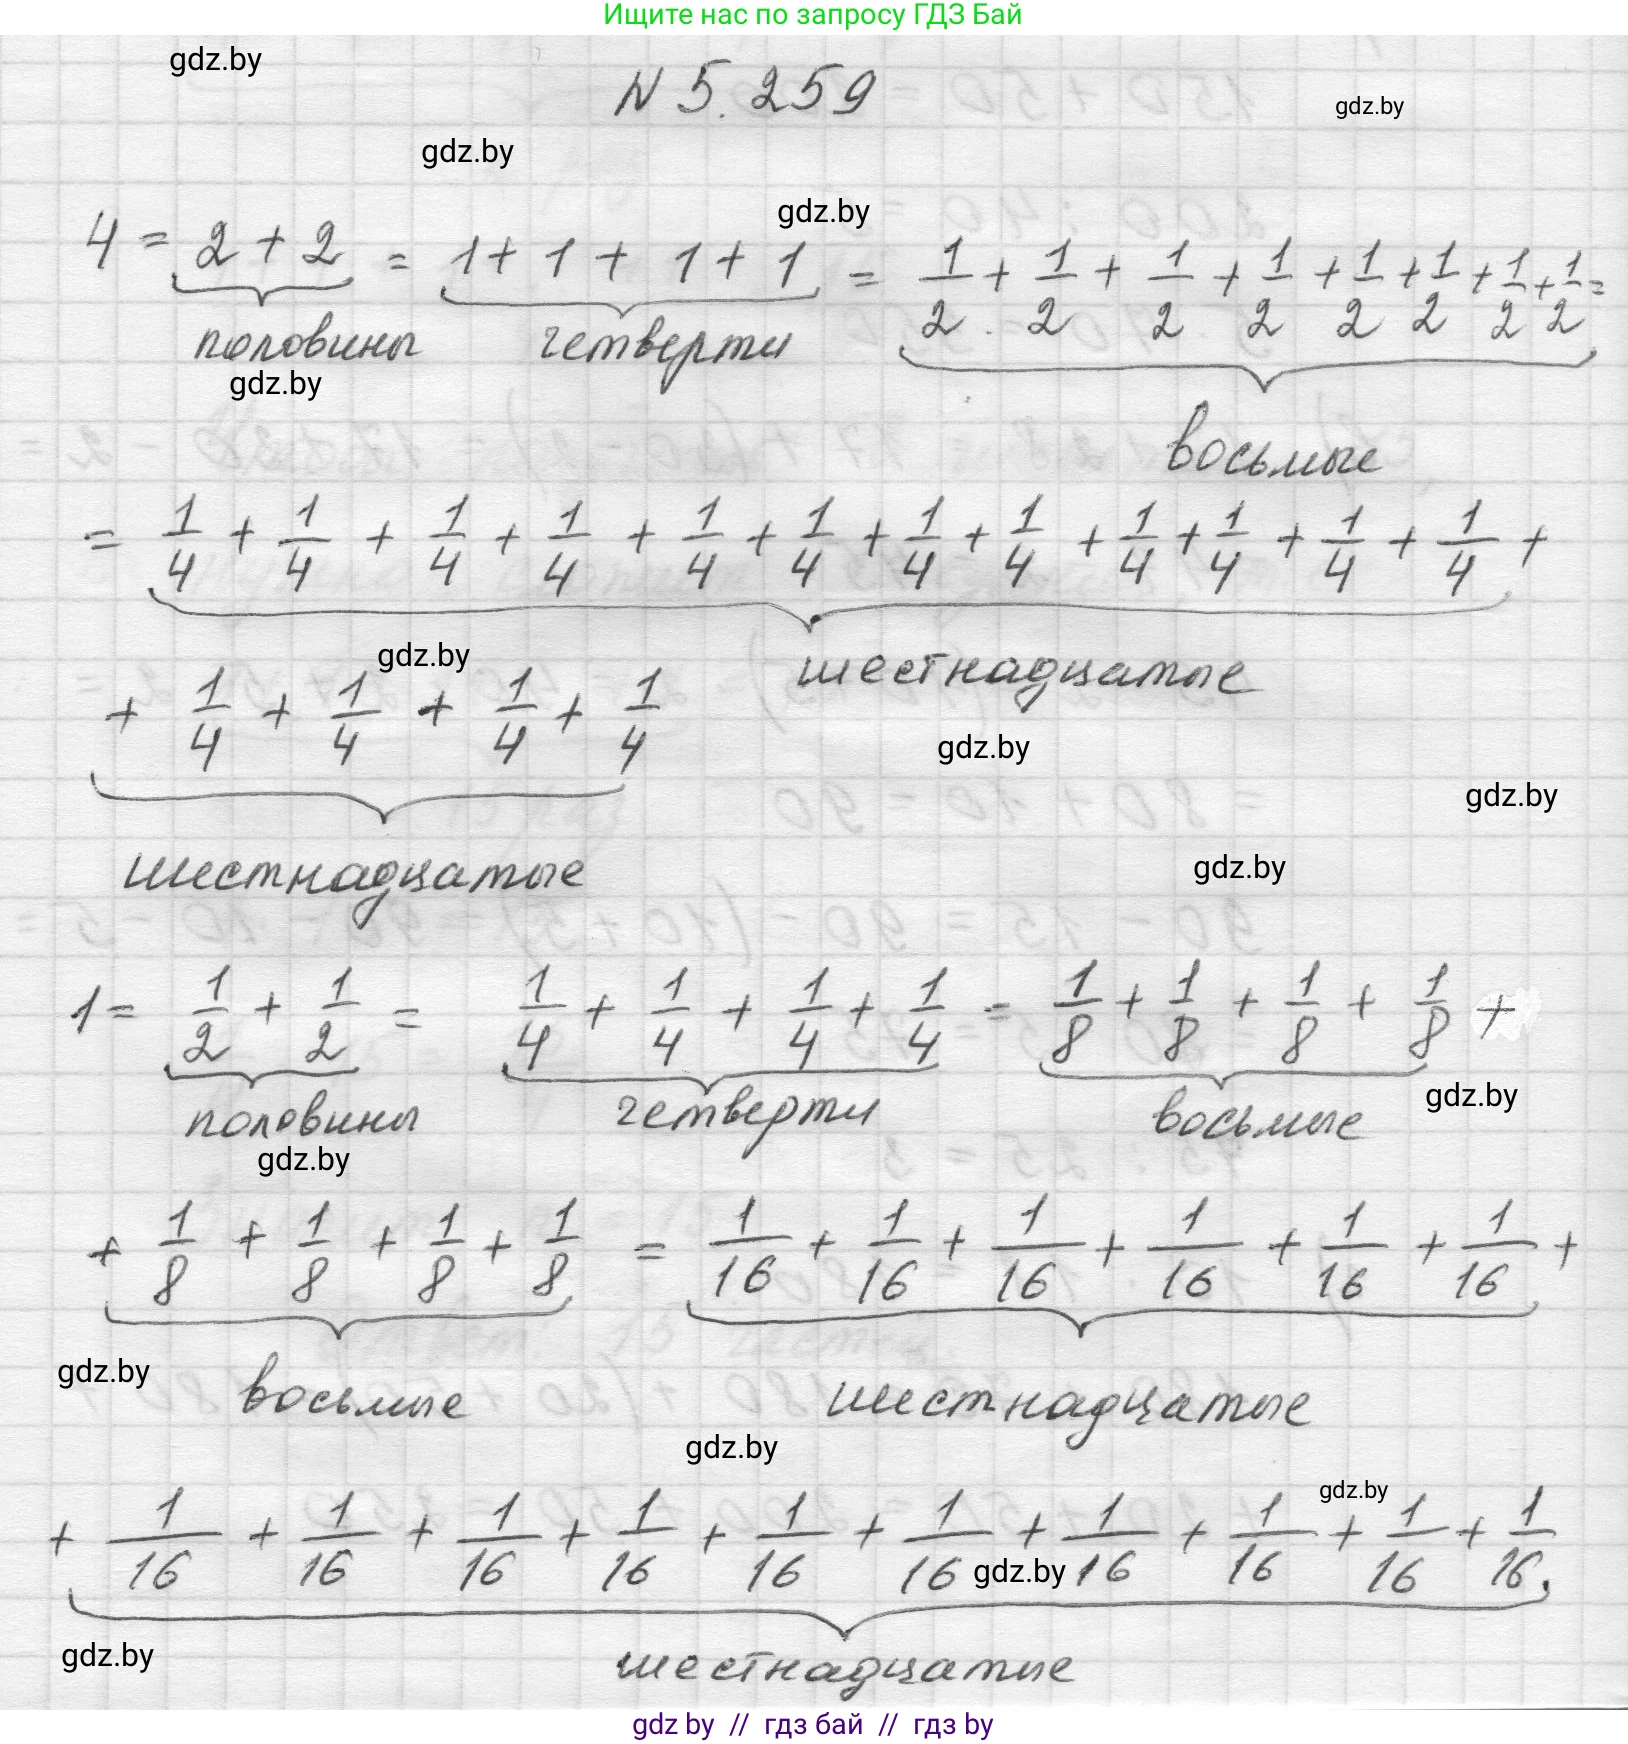 Ищите нас по запросу ГДЗ Бай
gdz.by
N 5.259
gdz.by
gdz.by
gdz.by
4 = 2 + 2 = 1 + 1 + 1 + 1 = 1/2 + 1/2 + 1/2 + 1/2 + 1/2 + 1/2 + 1/2 + 1/2 =
половины четверти
gdz.by
восьмые
= 1/4 + 1/4 + 1/4 + 1/4 + 1/4 + 1/4 + 1/4 + 1/4 + 1/4 + 1/4 + 1/4 + 1/4 +
gdz.by
шестнадцатые
+ 1/4 + 1/4 + 1/4 + 1/4
gdz.by
gdz.by
шестнадцатые
gdz.by
1 = 1/2 + 1/2 = 1/4 + 1/4 + 1/4 + 1/4 = 1/8 + 1/8 + 1/8 + 1/8 +
gdz.by
половины четверти восьмые
gdz.by
+ 1/8 + 1/8 + 1/8 + 1/8 = 1/16 + 1/16 + 1/16 + 1/16 + 1/16 + 1/16 +
gdz.by
восьмые шестнадцатые
gdz.by
gdz.by
+ 1/16 + 1/16 + 1/16 + 1/16 + 1/16 + 1/16 + 1/16 + 1/16 + 1/16 + 1/16.
gdz.by
gdz.by
шестнадцатые
gdz by // гдз бай // гдз by